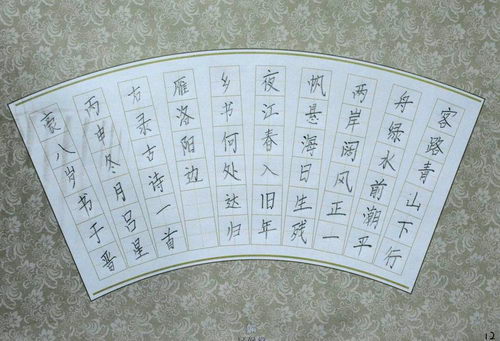 客路青山下行
舟绿水前潮平
两岸阔风正一
帆悬海日生残
夜江春入旧年
乡书何处达归
雁洛阳边
右录古诗一首
丙申冬月吕星
豪八岁书于晋
12